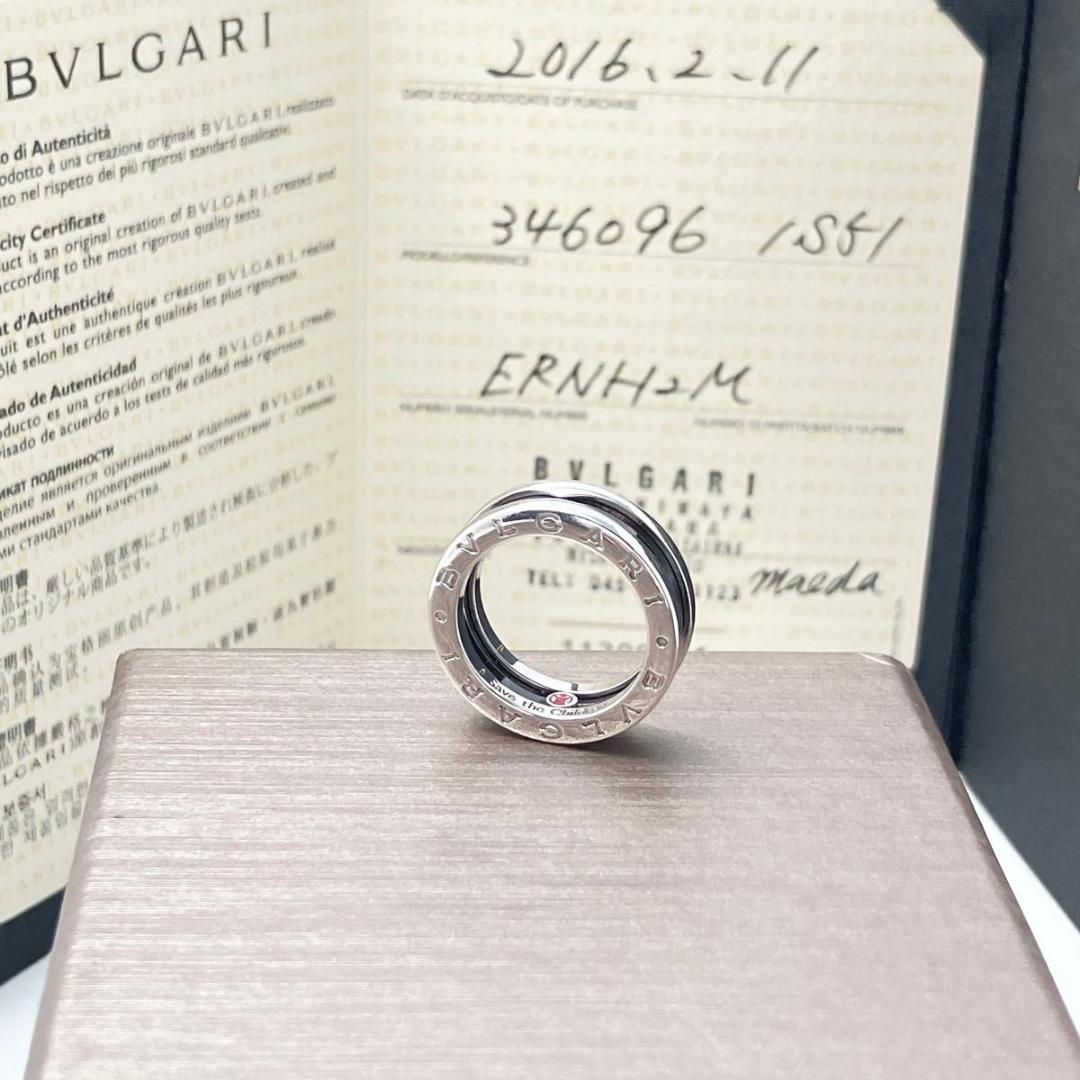 BVLGARI
o di Autenticità
odotto è una creazione originale BVLGARI, realizzato
to nel rispetto dei più rigorosi standard qualitativi.
city Certificate
uct is an original creation of BVLGARI, created and
according to the most rigorous quality tests.
t d'Authenticité
uit est une authentique création BVLGARI, réalisé
ôlé selon les critères de qualités les plus rigoureux.
ado de Autenticidad
oducto es una creación original de BVLGARI, creado
visado de acuerdo a los tests de calidad más rigurosos.
икат подлинности
делие является оригинальным изделием BVLGARI,
ленным и проверенным в соответствии с самыми
ми стандартами качества.
明書
品は、厳しい品質基準により製造され検査に合格した、ブ
のオリジナル商品です。
明书
明書
LGARI
보증서
2016.2.11
DATA D'ACQUISTO/DATE OF PURCHASE
346096 /S51
MODELLO/REFERENCE
ERNH2M
NUMERO SERIALE/SERIAL NUMBER NUMERO DI PARTITA/BATCH NUMBER
BVLGARI
TEL: 045 123
maeda
BVLGARI
BVLGARI
Save the Children